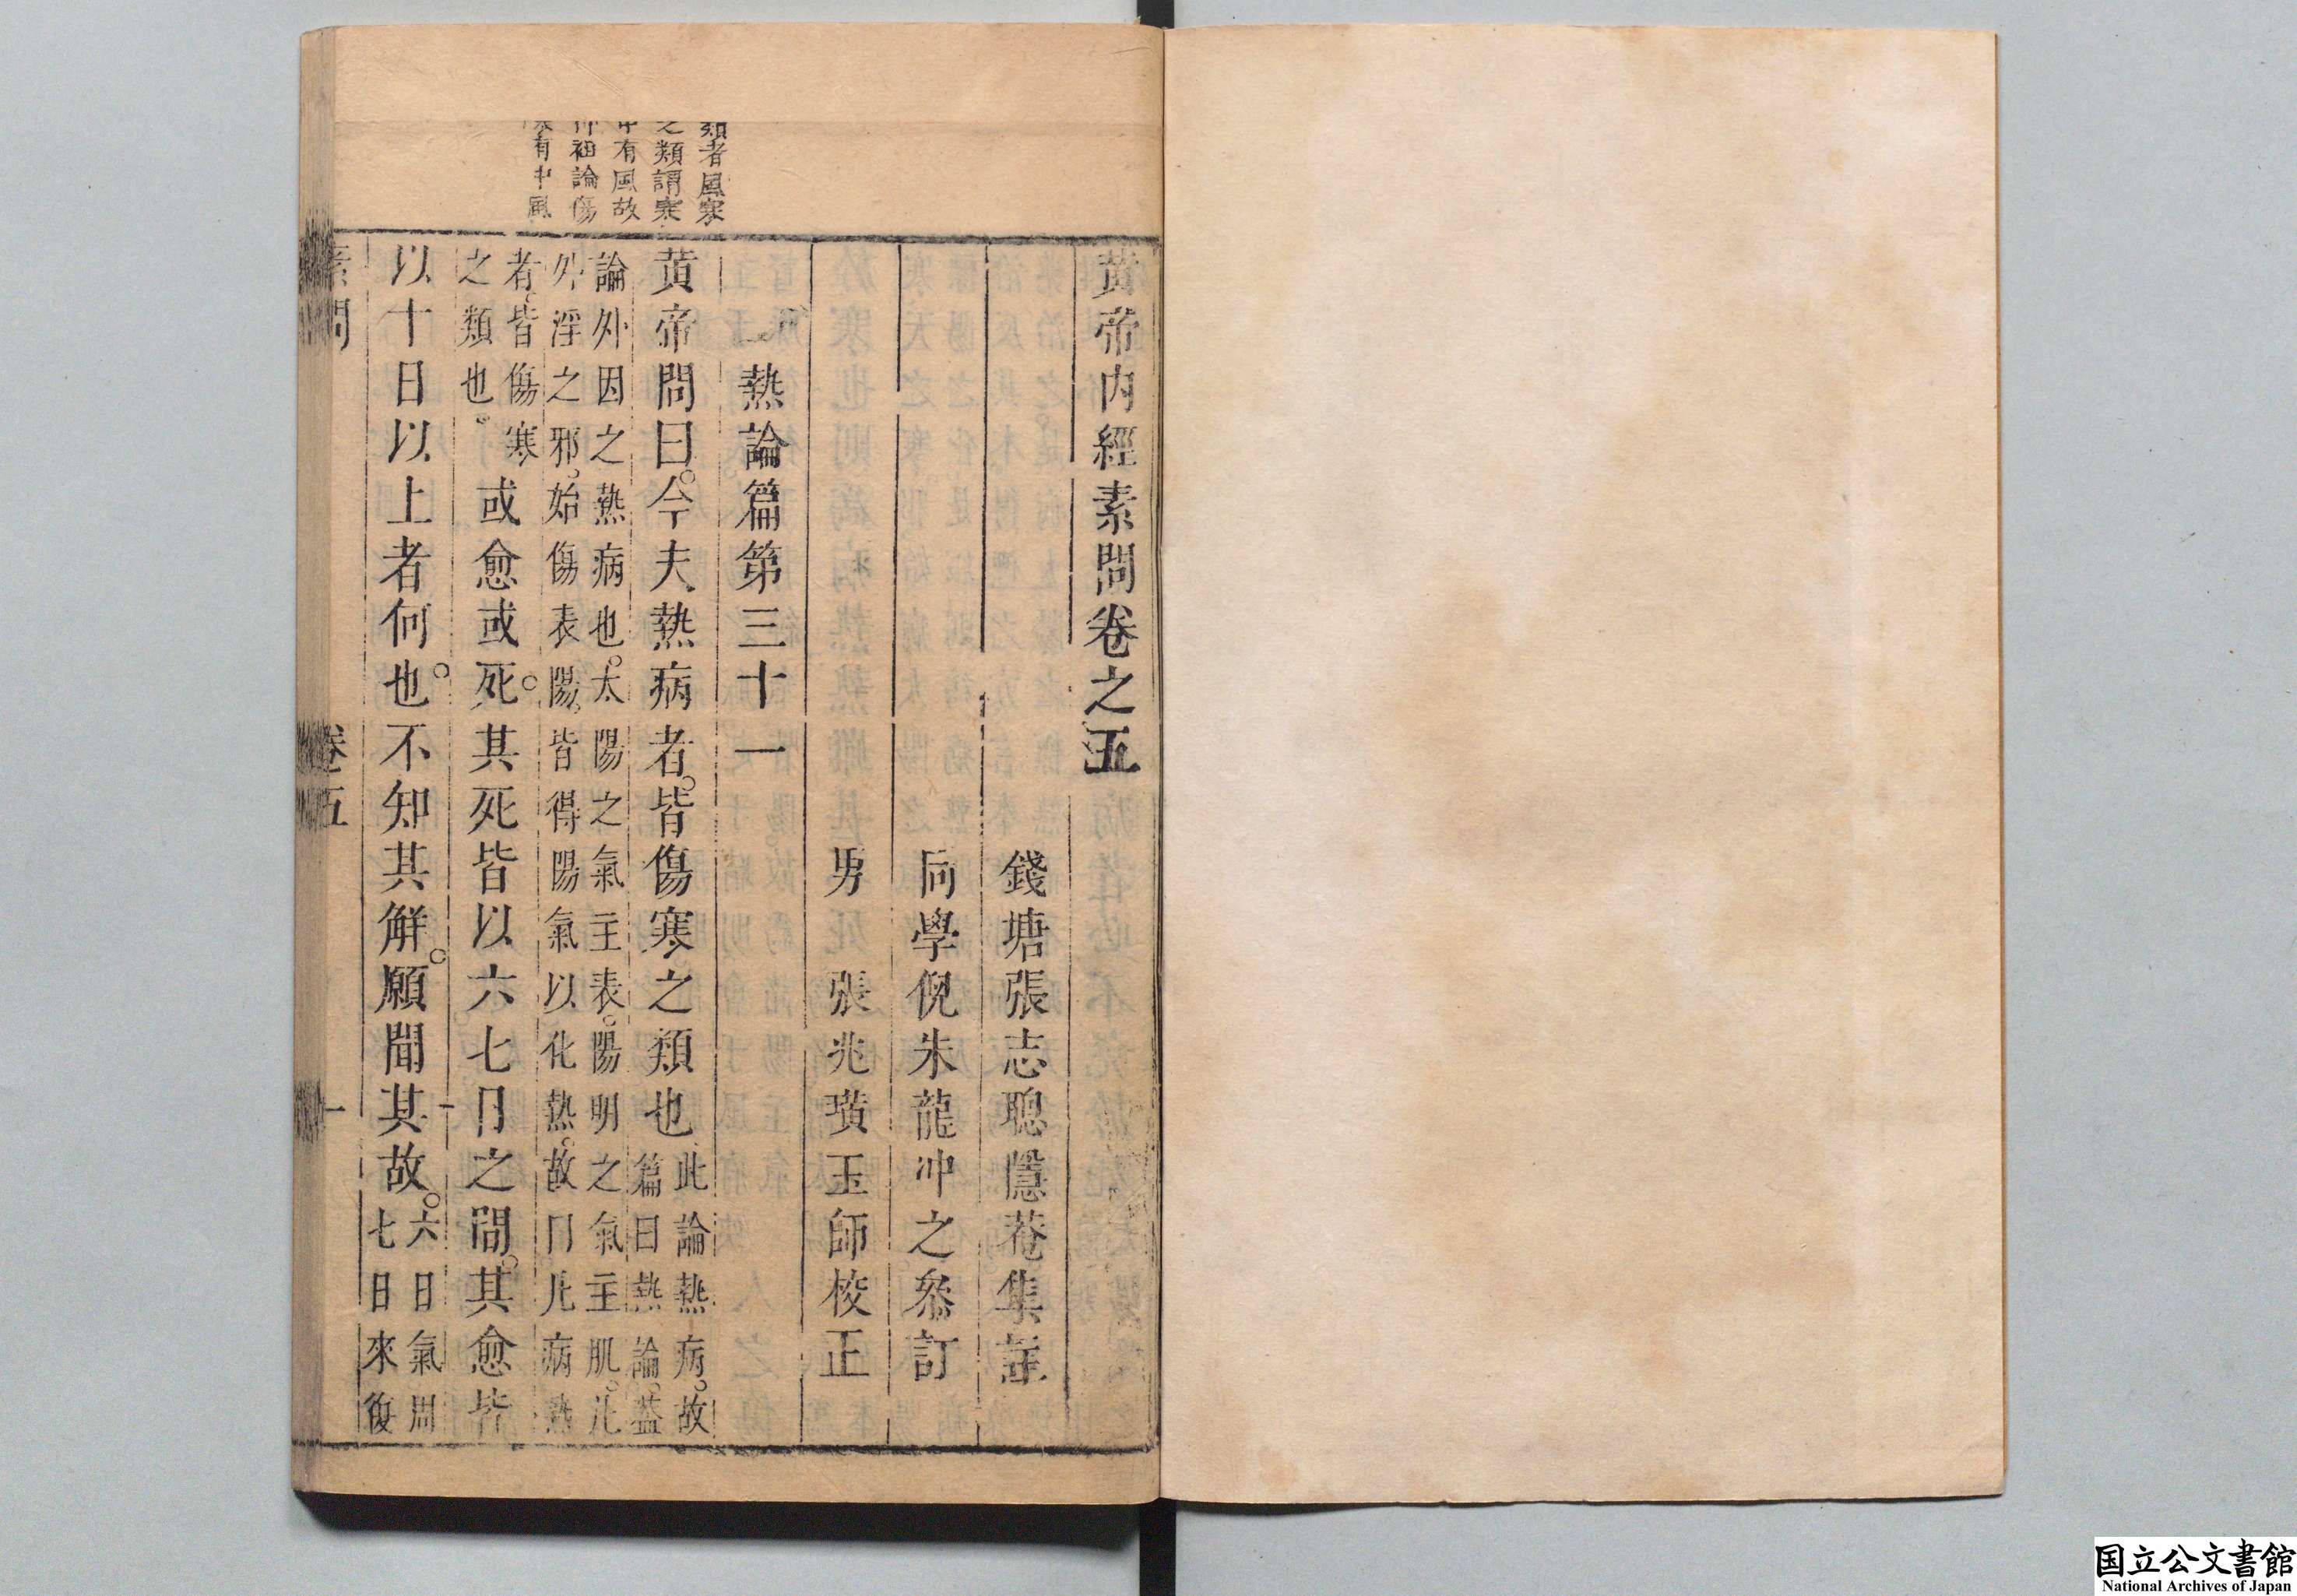 黄帝内經素問卷之五
錢塘張志聰隱菴集註
同學倪朱龍冲之叅訂
男 張兆璜玉師校正
熱論篇第三十一
黄帝問曰。今夫熱病者。皆傷寒之類也此論熱病。故
篇曰熱論。蓋
論外因之熱病也。太陽之氣主表。陽明之氣主肌。凡
外淫之邪。始傷表陽。皆得陽氣以化熱。故曰凡病熱
者。皆傷寒
之類也。
或愈或死。其死皆以六七日之間。其愈皆
以十日以上者何也。不知其解。願聞其故。六日氣周
七日來復
類者風寒
之類謂寒
中有風故
仲祖論傷
寒有中風
素問 卷五 一
国立公文書館
National Archives of Japan